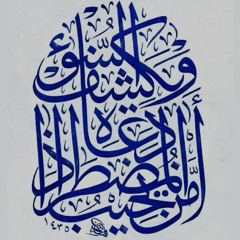 أمن يجيب المضطر إذا
دعاه
ويكشف السوء
١٤٣٥